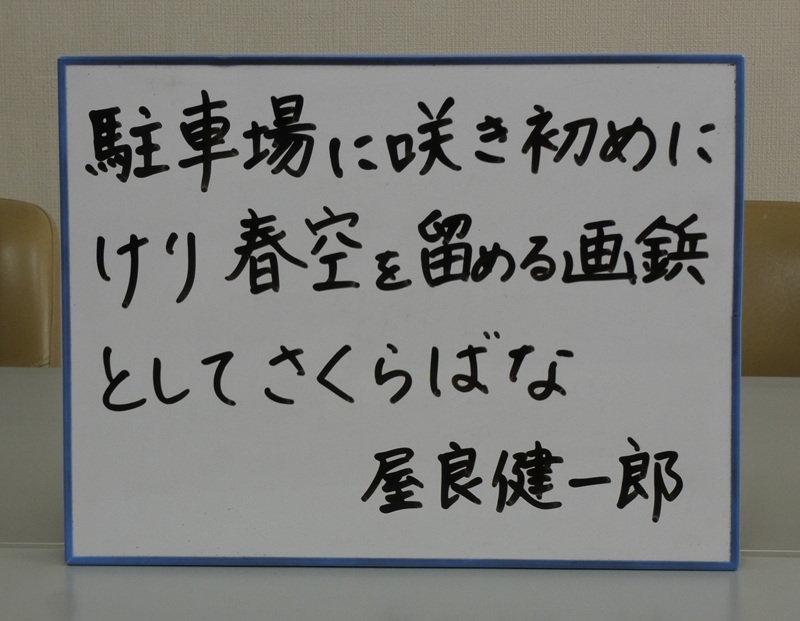 駐車場に咲き初めに
けり春空を留める画鋲
としてさくらばな
屋良健一郎